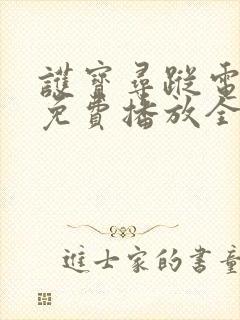 護寶尋蹤電
免費播放全
進士家的書童